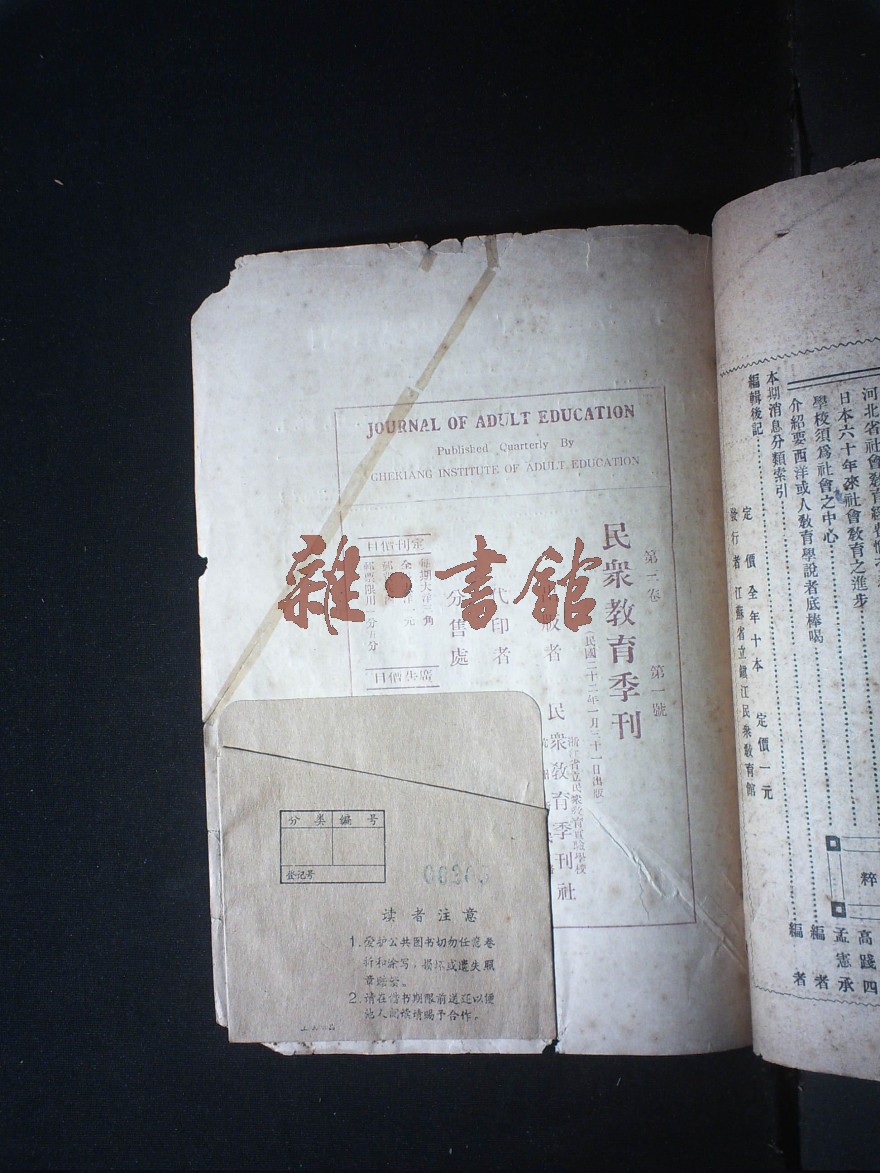 JOURNAL OF ADULT EDUCATION
Published Quarterly By
CHEKIANG INSTITUTE OF ADULT EDUCATION
第二卷 第一號
民衆教育季刊
(民國二十二年一月三十一日出版)
浙江省立民衆教育實驗學校
民衆教育季刊社
代印者
分售處
定刊價目
每期大洋三角
廣告價目
雜·書館
分类编号
登记号
读者注意
1.爱护公共图书切勿任意卷
折和涂写，损坏或遗失照
章赔偿。
2.请在借书期限前送还以便
他人阅读请赐予合作。
日本六十年來社會教育之進步
學校須爲社會之中心
高踐四
介紹要西洋或人教育學說者底棒喝
孟憲承
本期消息分類索引
編者
編輯後記
編者
粹
定價 全年十本 定價一元
發行者 江蘇省立鎮江民衆教育館